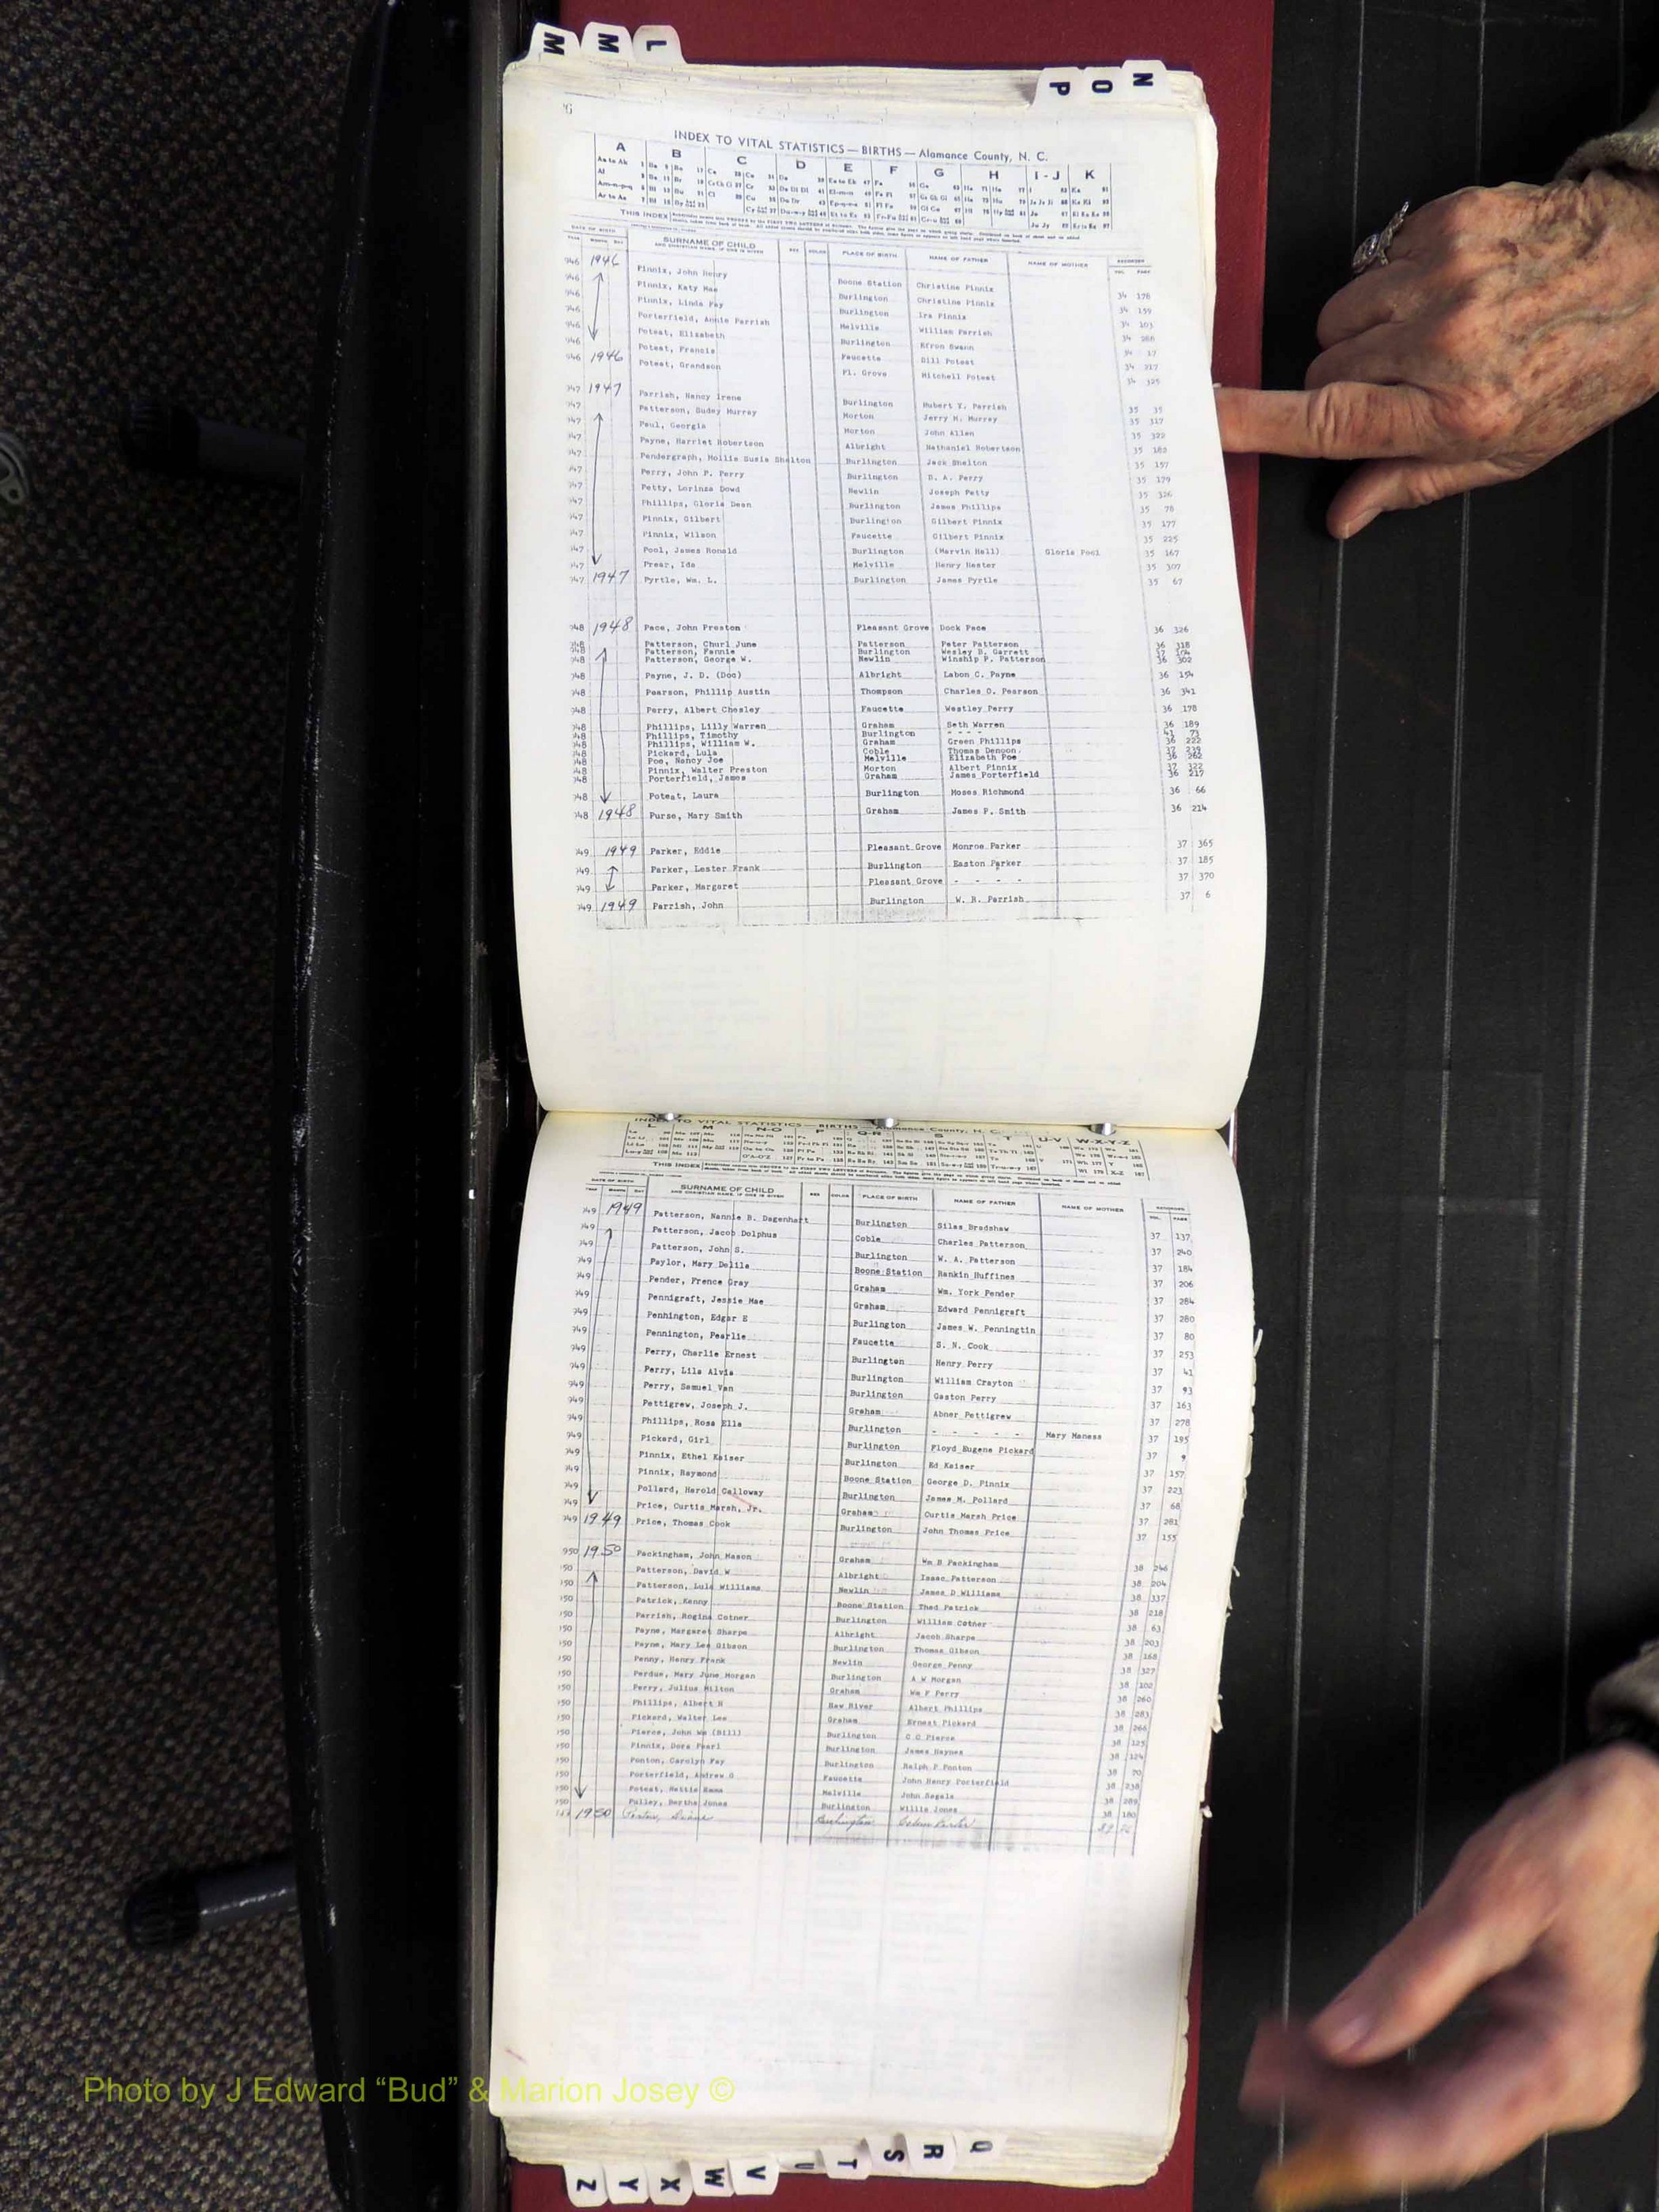 M M L
N O P
INDEX TO VITAL STATISTICS — BIRTHS — Alamance County, N. C.
A B C D E F G H I - J K
THIS INDEX
DATE OF BIRTH SURNAME OF CHILD SEX COLOR PLACE OF BIRTH NAME OF FATHER NAME OF MOTHER RECORDED
AND CHRISTIAN NAME, IF ONE IS GIVEN VOL. PAGE
946 1946 Pinnix, John Henry Boone Station Christine Pinnix 34 178
946 Pinnix, Katy Mae Burlington Christine Pinnix 34 159
946 Pinnix, Linda Fay Burlington Ira Pinnix 34 103
946 Porterfield, Annie Parrish Melville William Parrish 34 266
946 Poteat, Elizabeth Burlington Efron Swann 34 17
946 Poteat, Francis Faucette Dill Poteat 34 217
946 1946 Poteat, Grandson Pl. Grove Mitchell Poteat 34 325
947 1947 Parrish, Nancy Irene Burlington Hubert Y. Parrish 35 35
947 Patterson, Sudey Murray Morton Jerry H. Murray 35 317
947 Paul, Georgia Morton John Allen 35 322
947 Payne, Harriet Robertson Albright Nathaniel Robertson 35 188
947 Pendergraph, Hollie Susie Shelton Burlington Jack Shelton 35 157
947 Perry, John P. Perry Burlington D. A. Perry 35 179
947 Petty, Lorinza Dowd Newlin Joseph Petty 35 326
947 Phillips, Gloria Dean Burlington James Phillips 35 78
947 Pinnix, Gilbert Burlington Gilbert Pinnix 35 177
947 Pinnix, Wilson Faucette Gilbert Pinnix 35 225
947 Pool, James Ronald Burlington (Marvin Hall) Gloria Pool 35 167
947 Prear, Ida Melville Henry Hester 35 307
947 1947 Pyrtle, Wm. L. Burlington James Pyrtle 35 67
948 1948 Pace, John Preston Pleasant Grove Dock Pace 36 326
948 Patterson, Churl June Patterson Peter Patterson 36 318
948 Patterson, Fannie Burlington Wesley B. Garrett 37 104
948 Patterson, George W. Newlin Winship P. Patterson 36 302
948 Payne, J. D. (Doc) Albright Labon C. Payne 36 154
948 Pearson, Phillip Austin Thompson Charles O. Pearson 36 341
948 Perry, Albert Chesley Faucette Westley Perry 36 178
948 Phillips, Lilly Warren Graham Seth Warren 36 189
948 Phillips, Timothy Burlington - - - - 41 73
948 Phillips, William W. Graham Green Phillips 36 222
948 Pickard, Lula Coble Thomas Denoon 37 239
948 Poe, Nancy Joe Melville Elizabeth Poe 36 262
948 Pinnix, Walter Preston Morton Albert Pinnix 37 322
948 Porterfield, James Graham James Porterfield 36 217
948 Poteat, Laura Burlington Moses Richmond 36 66
948 1948 Purse, Mary Smith Graham James P. Smith 36 214
949 1949 Parker, Eddie Pleasant Grove Monroe Parker 37 365
949 Parker, Lester Frank Burlington Easton Parker 37 185
949 Parker, Margaret Pleasant Grove - - - - 37 370
949 1949 Parrish, John Burlington W. R. Parrish 37 6
INDEX TO VITAL STATISTICS — BIRTHS — Alamance County, N. C.
L M N-O P Q-R S T U-V W-X-Y-Z
THIS INDEX
DATE OF BIRTH SURNAME OF CHILD SEX COLOR PLACE OF BIRTH NAME OF FATHER NAME OF MOTHER RECORDED
AND CHRISTIAN NAME, IF ONE IS GIVEN VOL. PAGE
949 1949 Patterson, Nannie B. Dagenhart Burlington Silas Bradshaw 37 137
949 Patterson, Jacob Dolphus Coble Charles Patterson 37 240
949 Patterson, John S. Burlington W. A. Patterson 37 184
949 Paylor, Mary Delila Boone Station Rankin Huffines 37 206
949 Pender, Frence Gray Graham Wm. York Pender 37 284
949 Pennigraft, Jessie Mae Graham Edward Pennigraft 37 280
949 Pennington, Edgar E Burlington James W. Penningtin 37 80
949 Pennington, Pearlie Faucette S. N. Cook 37 253
949 Perry, Charlie Ernest Burlington Henry Perry 37 41
949 Perry, Lila Alvis Burlington William Crayton 37 93
949 Perry, Samuel Van Burlington Gaston Perry 37 163
949 Pettigrew, Joseph J. Graham Abner Pettigrew 37 278
949 Phillips, Rosa Ella Burlington - - - - - Mary Maness 37 195
949 Pickard, Girl Burlington Floyd Eugene Pickard 37 9
949 Pinnix, Ethel Kaiser Burlington Ed Kaiser 37 157
949 Pinnix, Raymond Boone Station George D. Pinnix 37 223
949 Pollard, Harold Calloway Burlington James M. Pollard 37 68
949 Price, Curtis Marsh, Jr. Graham Curtis Marsh Price 37 281
949 1949 Price, Thomas Cook Burlington John Thomas Price 37 155
950 1950 Packingham, John Mason Graham Wm B Packingham 38 246
950 Patterson, David W Albright Isaac Patterson 38 204
950 Patterson, Lula Williams Newlin James D Williams 38 337
950 Patrick, Kenny Boone Station Thad Patrick 38 218
950 Parrish, Regina Cotner Burlington William Cotner 38 63
950 Payne, Margaret Sharpe Albright Jacob Sharpe 38 203
950 Payne, Mary Lee Gibson Burlington Thomas Gibson 38 168
950 Penny, Henry Frank Newlin George Penny 38 327
950 Perdue, Mary June Morgan Burlington A W Morgan 38 102
950 Perry, Julius Hilton Graham Wm F Perry 38 260
950 Phillips, Albert N Haw River Albert Phillips 38 283
950 Pickard, Walter Lee Graham Ernest Pickard 38 266
950 Pierce, John Wm (Bill) Burlington C C Pierce 38 125
950 Pinnix, Dora Pearl Burlington James Haynes 38 124
950 Ponton, Carolyn Fay Burlington Ralph P Ponton 38 70
950 Porterfield, Andrew G Faucette John Henry Porterfield 38 238
950 Poteat, Hattie Emma Melville John Segals 38 289
950 Pulley, Bertha Jones Burlington Willis Jones 38 180
1950 Porter, Diane Burlington Porter
Photo by J Edward “Bud” & Marion Josey ©
Z Y X W V U T S R Q